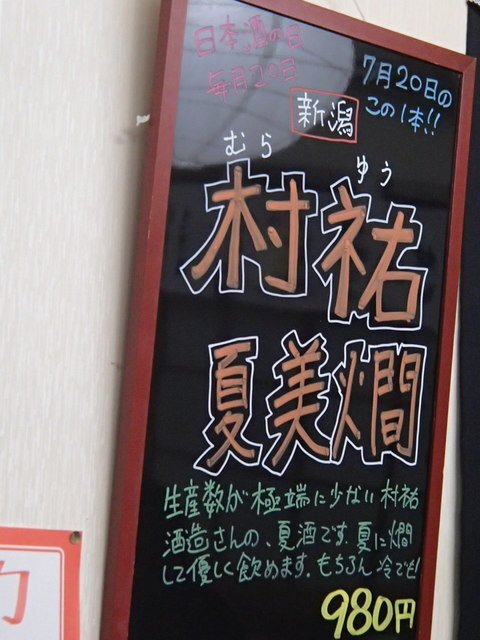 日本酒の日
毎月20日
7月20日の
この1本!!
新潟
むら ゆう
村祐
夏美燗
生産数が極端に少ない村祐
酒造さんの、夏酒です。夏に燗
して優しく飲めます。もちろん冷でも!
980円